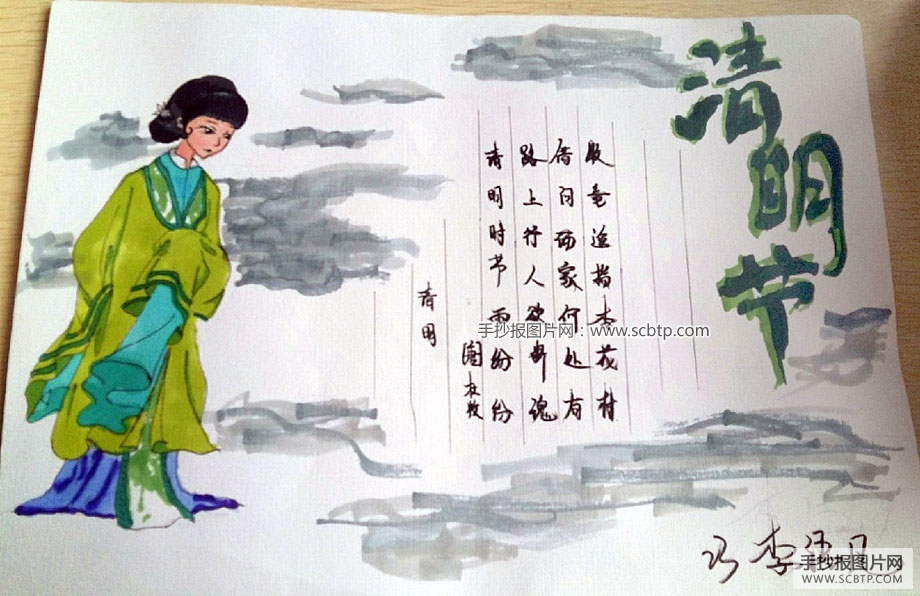 清明节
清明
杜牧
清明时节雨纷纷
路上行人欲断魂
借问酒家何处有
牧童遥指杏花村
手抄报图片网：www.scbtp.com
李
手抄报图片网
WWW.SCBTP.COM